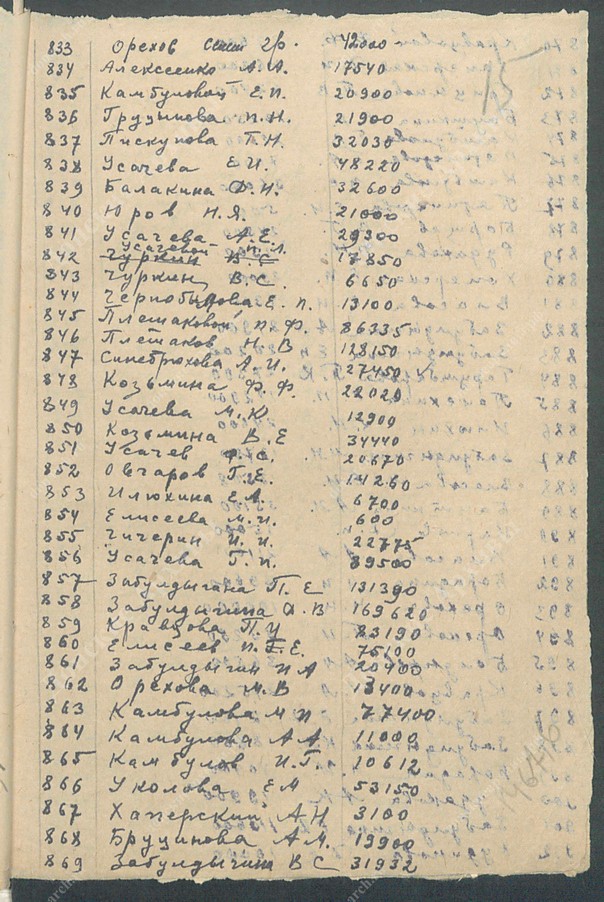 833 Орехов Семён Гр. 42000
834 Алексеенко А.А. 17540
835 Камбуловой Е.П. 20900
836 Грудинова П.Н. 21900
837 Пискунова Т.Н. 32030
838 Усачева Е.И. 48220
839 Балакина Ф.И. 32600
840 Юров Н.Я. 21000
841 Усачева А.Е. 29300
Усачевой П.Л.
842 Чуркин В.С 17850
843 Чуркин В.С. 6650
844 Чернобылова Е.П. 13100
845 Плешаковой П.Ф. 86335
846 Плешаков Н.В 128150
847 Синебрюхова А.И. 27450
848 Козьмина Ф.Ф. 22020
849 Усачева М.К 12900
850 Козьмина В.Е 34440
851 Усачев Ф.С. 20670
852 Овчаров Г.Е. 14260
853 Илюхина Е.А. 6700
854 Елисеева М.И. 600
855 Чичерин И.И. 22775
856 Усачева Г.П. 89500
857 Забулдыгина П.Е 131390
858 Забулдыгина А.В 169620
859 Кравцова П.У 83190
860 Елисеев П.Е. 75100
861 Забулдыгин П А 20400
862 Орехова М.В 13400
863 Камбулова М П 77400
864 Камбулова А А 11000
865 Камбулов И.Г. 10612
866 Уколова Е М 53150
867 Хаперский А Н 3100
868 Бруцинова А.М. 19900
869 Забулдыгина В С 31932